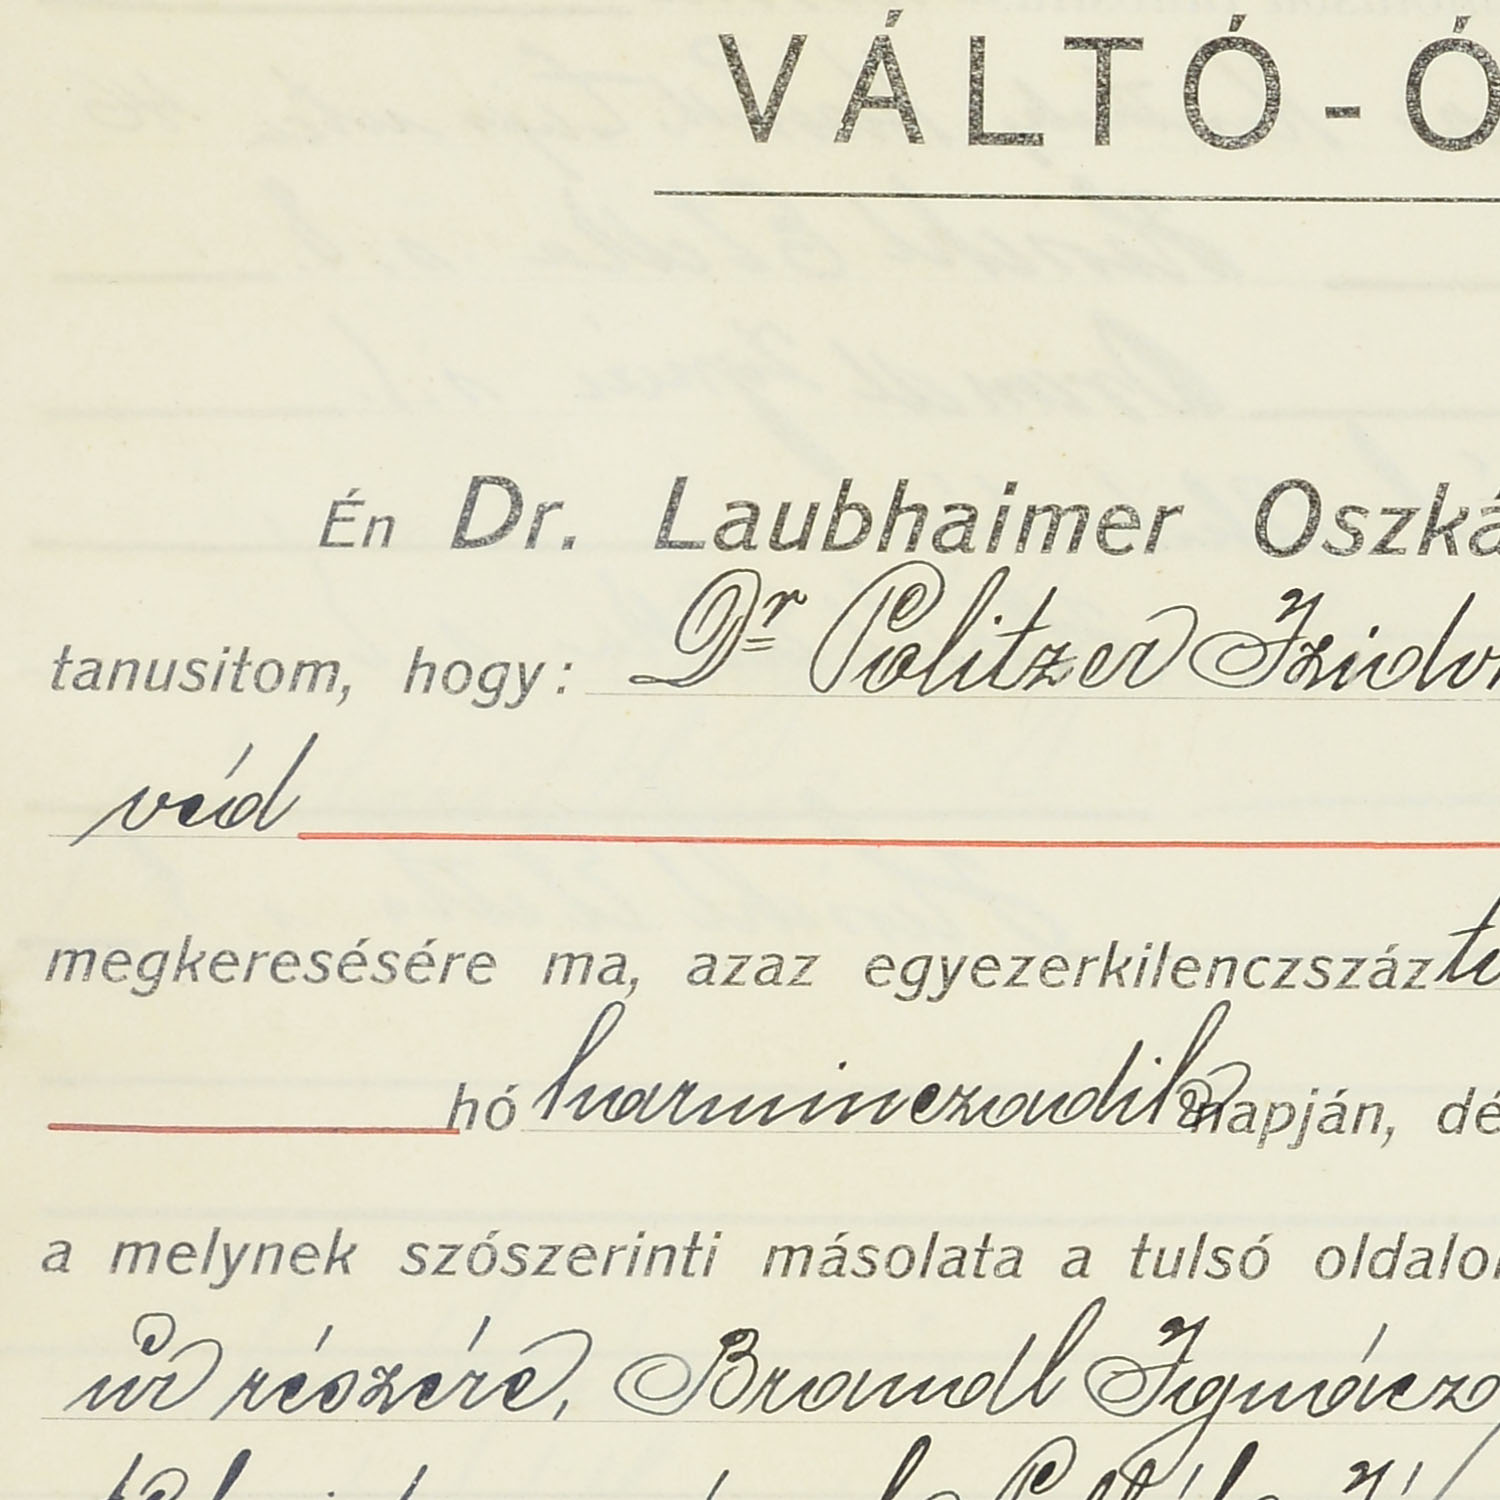 VÁLTÓ-Ó
Én Dr. Laubhaimer Oszká
tanusitom, hogy: Dr Politzer Izidor
véd
megkeresésére ma, azaz egyezerkilenczszáz
hó harminczadik napján, dé
a melynek szószerinti másolata a tulsó oldalon
úr részére, Brandl Ignácz